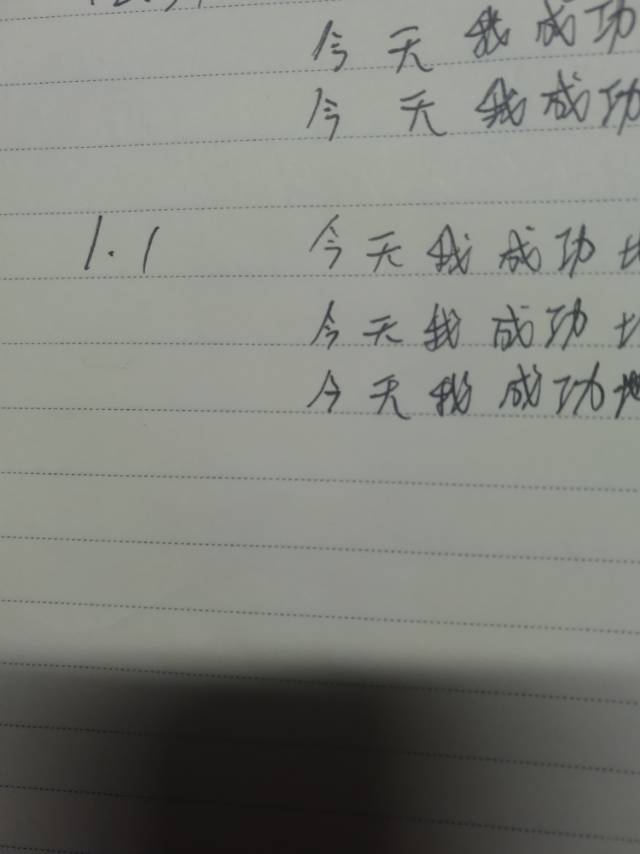 今天我成功
今天我成功
1.1 今天我成功地
今天我成功
今天我成功地